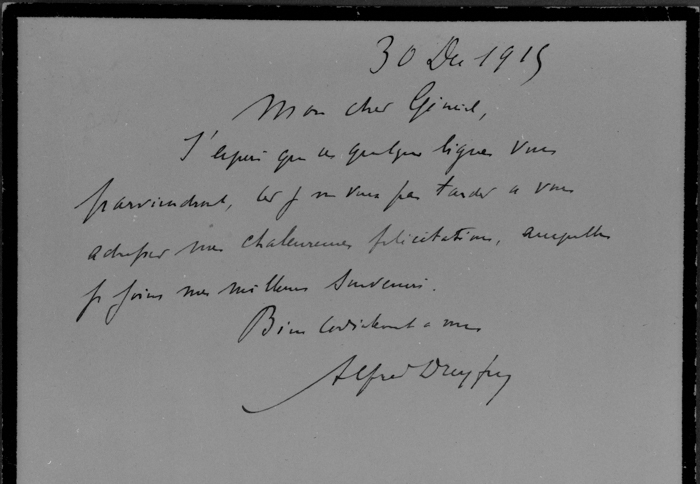 30 Dec 1915
Mon cher Général,
J'espère que ces quelques lignes vous
parviendront, car je ne veux pas tarder à vous
adresser mes chaleureuses félicitations, auxquelles
je joins mes meilleurs souvenirs.
Bien cordialement à vous
Alfred Dreyfus